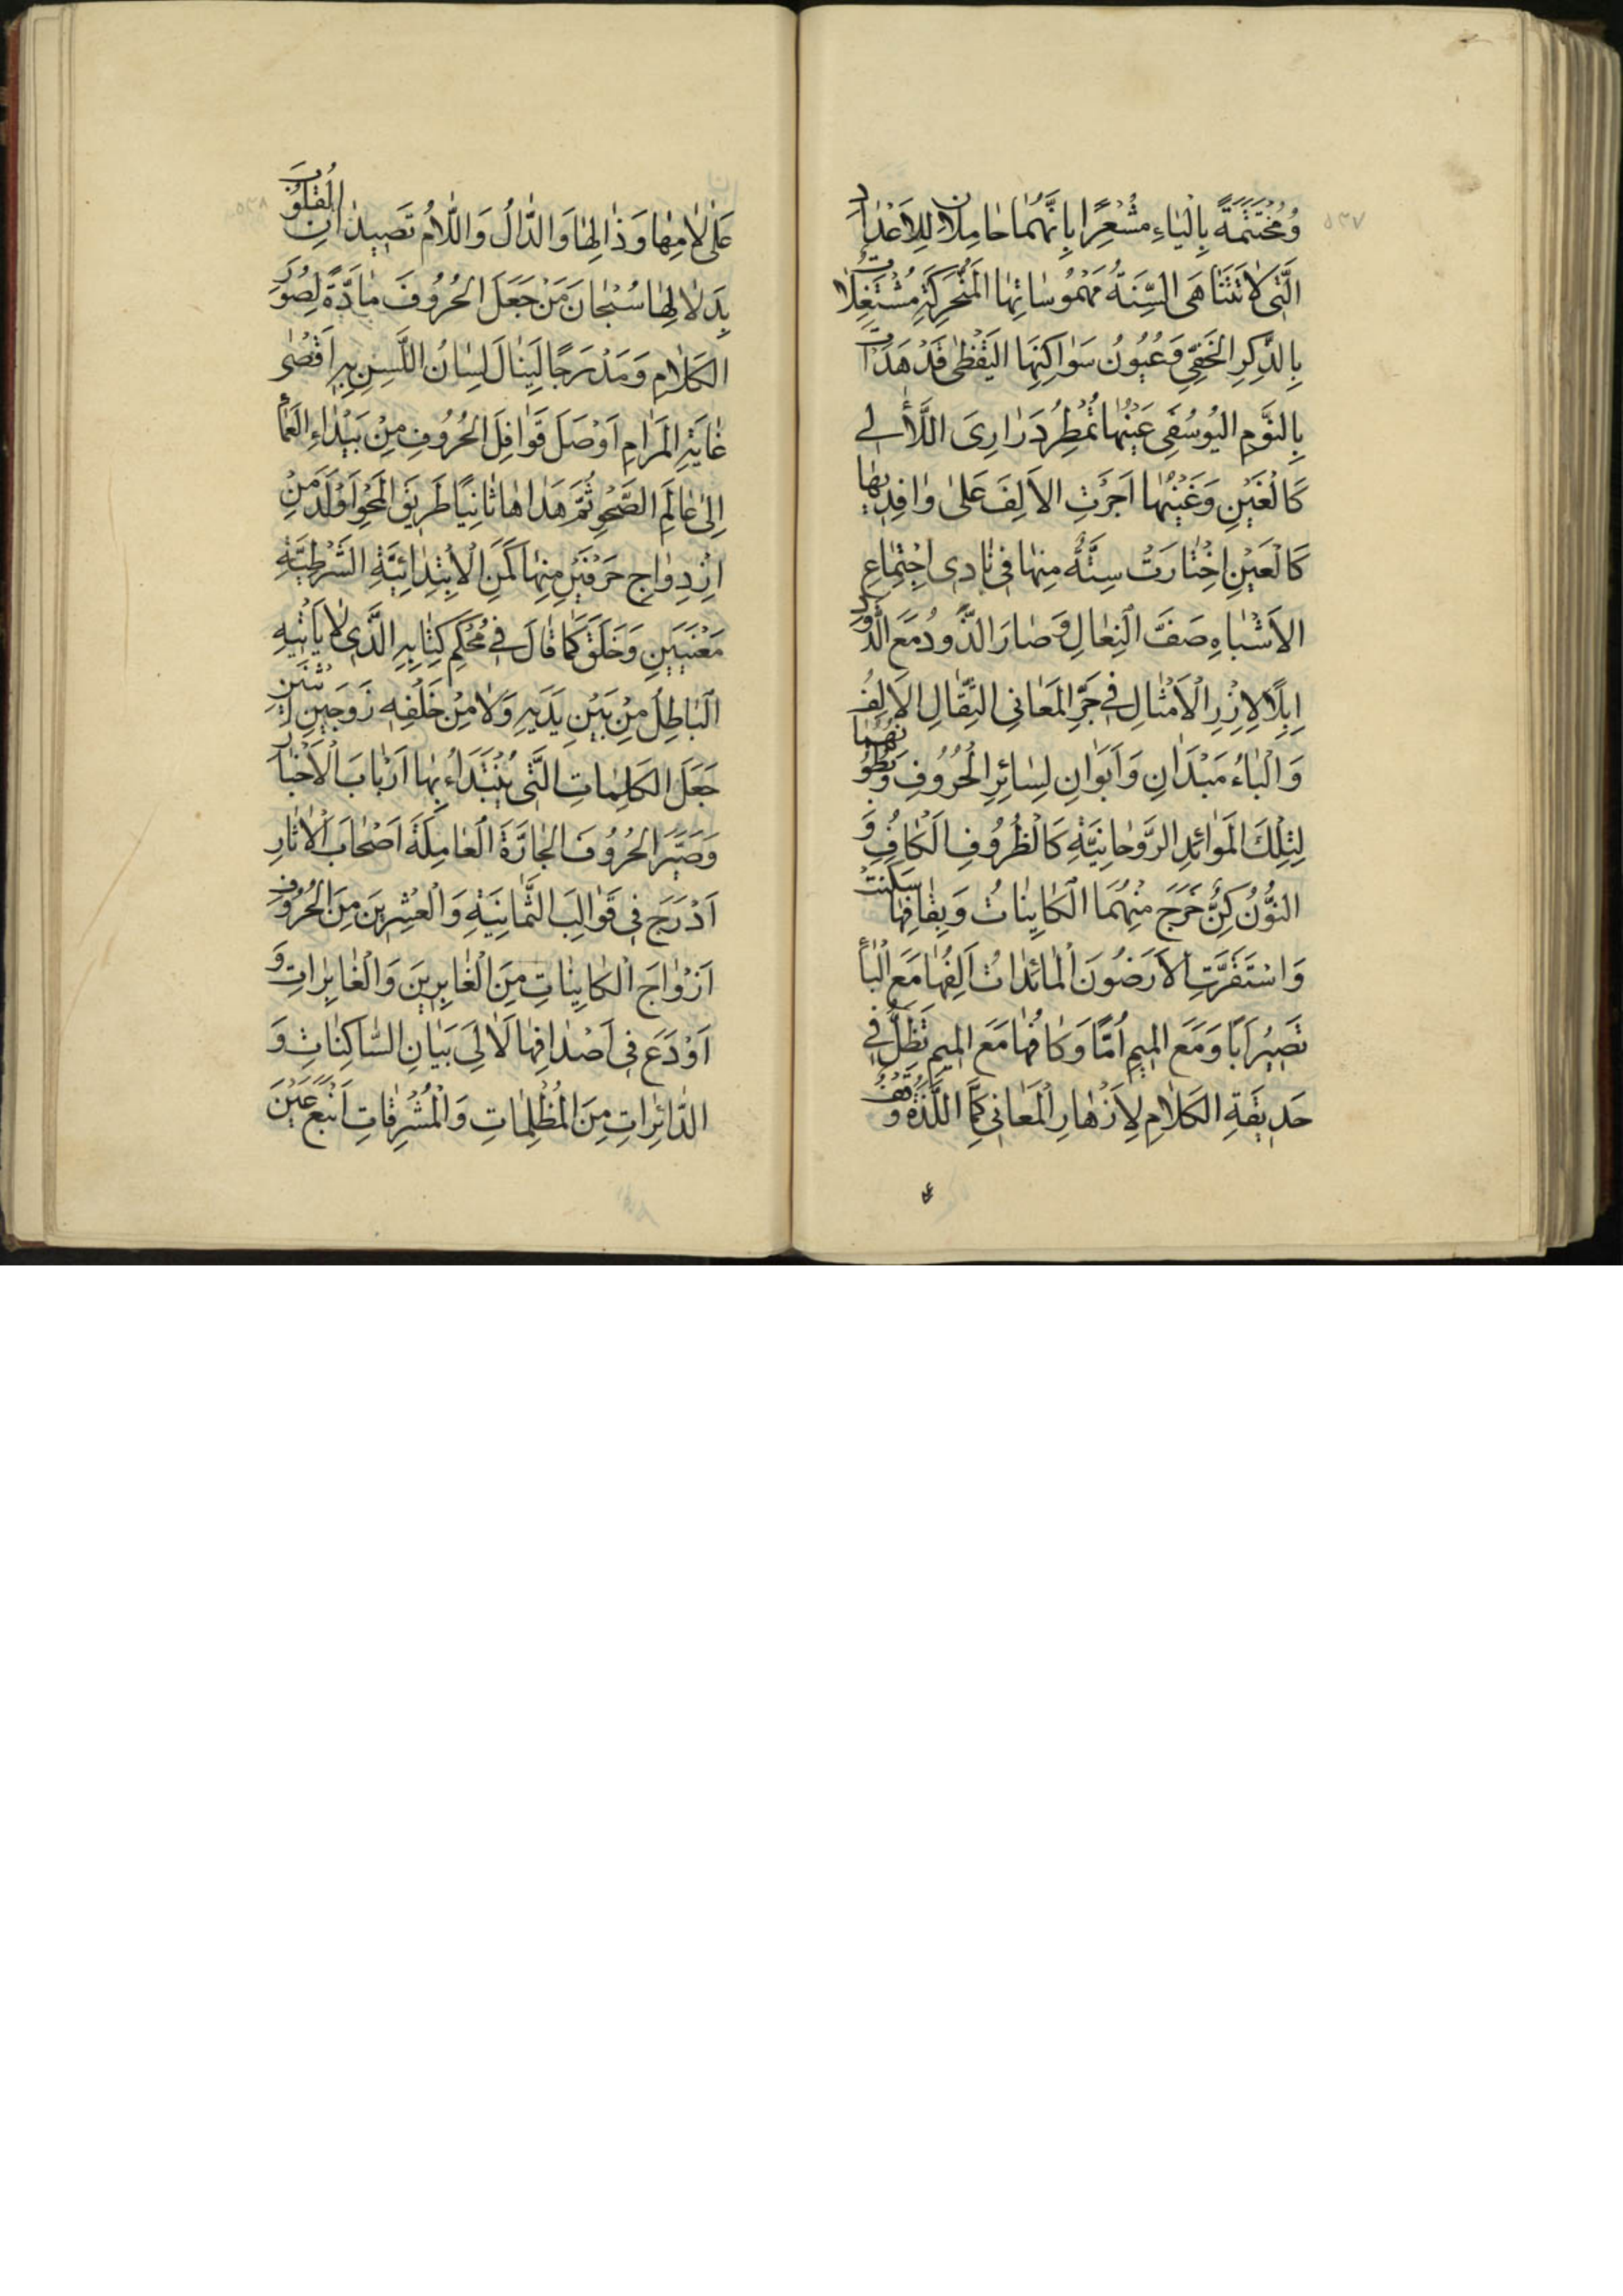 ٥٣٧
وَمُخْتَتَمَةً بِالْيَاءِ مُشْعِرًا بِاَنَّهُمَا حَامِلَانِ لِلْاَعْدَادِ
الَّتِي لَا تَتَنَاهَى اَلْسِنَةُ مَهْمُوسَاتِهَا الْمُتَحَرِّكَةِ مُشْتَغِلَاتٌ
بِالذِّكْرِ الْخَفِيِّ وَعُيُونُ سَوَاكِنِهَا الْيَقْظَى قَدْ هَدَاَتْ
بِالنَّوْمِ الْيُوسُفِي عَيْنُهَا تُمْطِرُ دَرَارِىَ اللَّآلِي
كَالْغَيْنِ وَغَيْنُهَا اَجْرَتِ الْاَلِفَ عَلَى وَافِدِيهَا
كَالْعَيْنِ اِخْتَارَتْ سِتَّةٌ مِنْهَا فِي نَادِى اجْتِمَاعِ
الْاَشْبَاهِ صَفَّ النِّعَالِ وَصَارَ الذَّوْدُ مَعَ الذَّوْدِ
اِبِلًا لِاَزْرِ الْاَمْثَالِ فِي جَرِّ الْمَعَانِي الثِّقَالِ الْاَلِفُ
وَالْبَاءُ مَبْدَاَنِ وَاَبَوَانِ لِسَائِرِ الْحُرُوفِ وَبُطُونُهُمَا
لِتِلْكَ الْمَوَائِدِ الرَّوْحَانِيَّةِ كَالظُّرُوفِ الْكَافُ وَ
النُّونُ كِنٌّ خَرَجَ مِنْهُمَا الْكَايِنَاتُ وَبِقَافِهَا سَكَنَتْ
وَاسْتَقَرَّتِ الْاَرَضُونَ الْمَائِدَاتُ اَلِفُهَا مَعَ الْبَاءِ
تَصِيرُ اَبًا وَمَعَ الْمِيمِ اُمًّا وَكَافُهَا مَعَ الْمِيمِ تَظَلُّ فِي
حَدِيقَةِ الْكَلَامِ لِاَزْهَارِ الْمَعَانِي كِمًّا اللَّذَّةُ وَقْفٌ
٥٣٨
عَلَى لَامِهَا وَذَالِهَا وَالدَّالُ وَاللَّامُ تَصِيدَانِ الْقُلُوبَ
بِدَلَالِهَا سُبْحَانَ مَنْ جَعَلَ الْحُرُوفَ مَادَّةً لِصُوَرِ
الْكَلَامِ وَمَدْرَجًا لِيَنَالَ لِسَانُ اللَّسِنِ بِهِ اَقْصَى
غَايَةِ الْمَرَامِ اَوْصَلَ قَوَافِلَ الْحُرُوفِ مِنْ بَيْدَاءِ الْعَمَاءِ
اِلَى عَالَمِ الصَّحْوِ ثُمَّ هَدَاهَا ثَانِيًا طَرِيقَ الْمَحْوِ اَوْلَدَ مِنْ
اِزْدِوَاجِ حَرْفَيْنِ مِنْهَا كَمَنِ الْاِبْتِدَائِيَّةِ الشَّرْطِيَّةِ
مَعْنَيَيْنِ وَخَلَقَ كَمَا قَالَ فِي مُحْكَمِ كِتَابِهِ الَّذِي لَا يَأْتِيهِ
الْبَاطِلُ مِنْ بَيْنِ يَدَيْهِ وَلَا مِنْ خَلْفِهِ زَوْجَيْنِ اثْنَيْنِ
جَعَلَ الْكَلِمَاتِ الَّتِي يُبْتَدَاءُ بِهَا اَرْبَابَ الْاَخْبَارِ
وَصَيَّرَ الْحُرُوفَ الْجَارَّةَ الْعَامِلَةَ اَصْحَابَ الْاٰثَارِ
اَدْرَجَ فِي قَوَالِبَ الثَّمَانِيَةِ وَالْعِشْرِينَ مِنَ الْحُرُوفِ
اَزْوَاجَ الْكَايِنَاتِ مِنَ الْغَابِرِينَ وَالْغَابِرَاتِ وَ
اَوْدَعَ فِي اَصْدَافِهَا لَاٰلِيَ بَيَانِ السَّاكِنَاتِ وَ
الدَّائِرَاتِ مِنَ الْمُظْلِمَاتِ وَالْمُشْرِقَاتِ اَنْبَعَ عَيْنَ